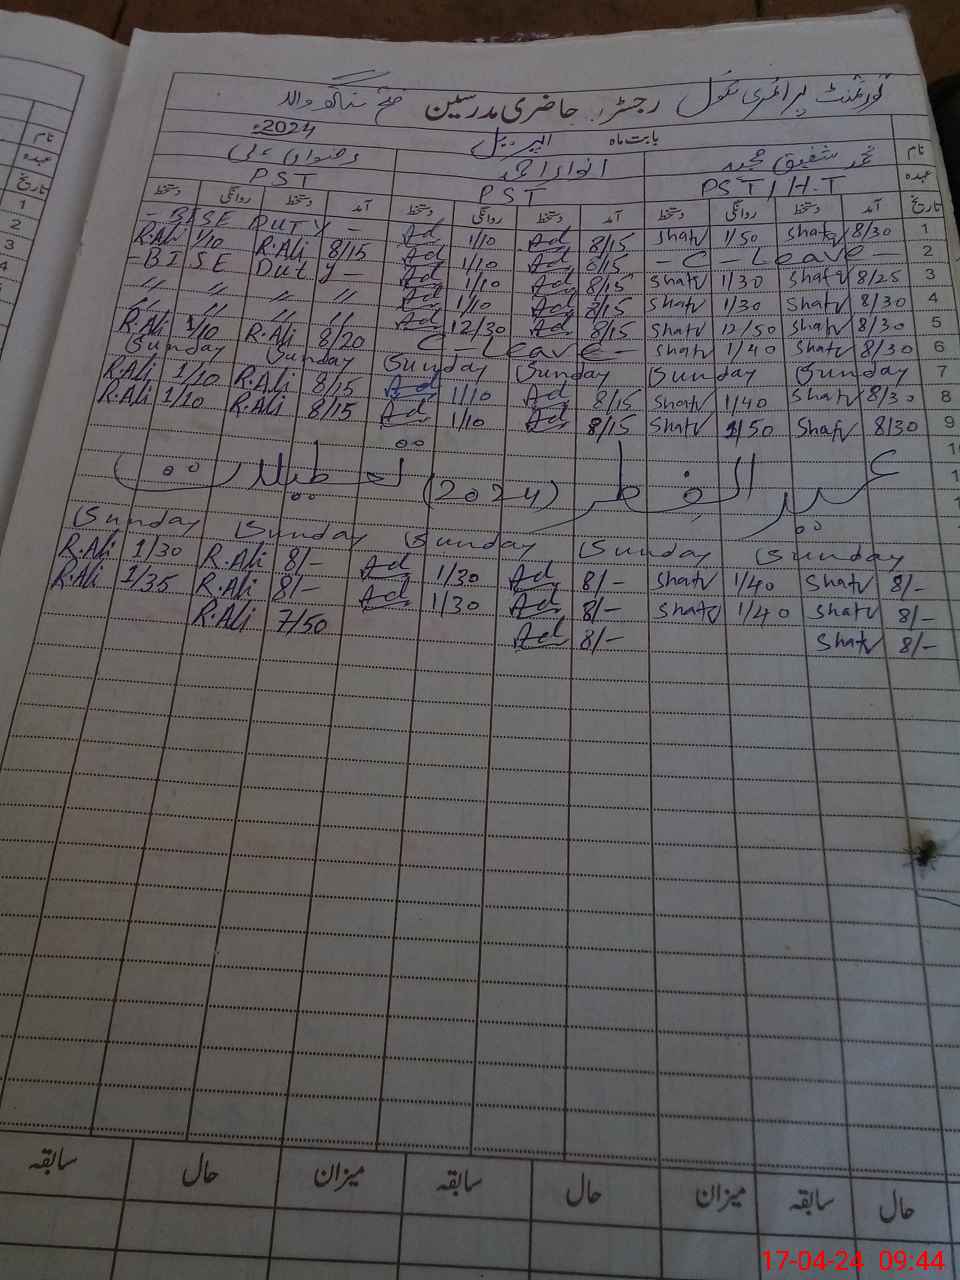 گورنمنٹ پرائمری سکول رجسٹر حاضری مدرسین فتح سنگھ والہ
بابت ماہ اپریل 2024ء
نام محمد شفیق مجید انوار احمد رضوان علی
عہدہ PST/H.T PST PST
تاریخ آمد دستخط روانگی دستخط آمد دستخط روانگی دستخط آمد دستخط روانگی دستخط
1 8/30 Shafv 1/50 Shafv 8/15 Ad 1/10 Ad - BISE DUTY -
2 - C - Leave - 8/15 Ad 1/10 Ad 8/15 R.Ali 1/10 R.Ali
3 8/25 Shafv 1/30 Shafv 8/15 Ad 1/10 Ad - BISE Duty -
4 8/30 Shafv 1/30 Shafv 8/15 Ad 1/10 Ad // // // //
5 8/30 Shafv 12/50 Shafv 8/15 Ad 12/30 Ad // // // //
6 8/30 Shafv 1/40 Shafv C - Leave - 8/20 R.Ali 1/10 R.Ali
7 Sunday Sunday Sunday Sunday Sunday Sunday
8 8/30 Shafv 1/40 Shafv 8/15 Ad 1/10 Ad 8/15 R.Ali 1/10 R.Ali
9 8/30 Shafv 1/50 Shafv 8/15 Ad 1/10 Ad 8/15 R.Ali 1/10 R.Ali
عید الفطر (2024) تعطیلات
Sunday Sunday Sunday Sunday Sunday
8/- Shafv 1/40 Shafv 8/- Ad 1/30 Ad 8/- R.Ali 1/30 R.Ali
8/- Shafv 1/40 Shafv 8/- Ad 1/30 Ad 8/- R.Ali 1/35 R.Ali
8/- Shafv 8/- Ad 7/50 R.Ali
حال سابقہ میزان حال سابقہ میزان حال سابقہ
نام
عہدہ
تاریخ
1
2
3
4
17-04-24 09:44